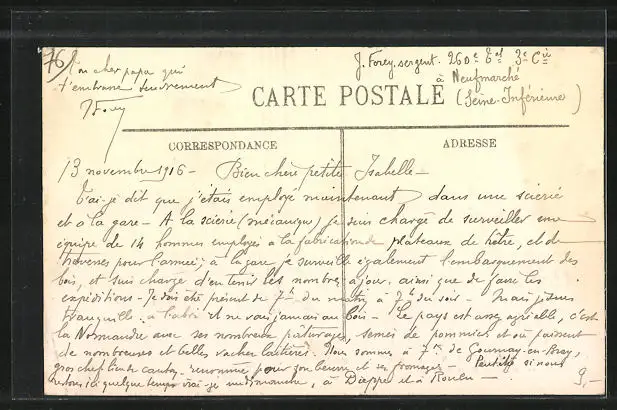 76
Ton cher papa qui
t'embrasse tendrement
J Forey
J. Forey, sergent. 260e Et 3e Cie
à Neufmarché
(Seine-Inférieure)
CARTE POSTALE
CORRESPONDANCE
ADRESSE
13 novembre 1916 - Bien chère petite Isabelle -
T'ai-je dit que j'étais employé maintenant dans une scierie
et à la gare - A la scierie (mécanique) je suis chargé de surveiller une
équipe de 14 hommes employés à la fabrication de plateaux de hêtre, et de
traverses pour l'armée; à la gare je surveille également l'embarquement des
bois, et suis chargé d'en tenir les nombres à jour, ainsi que de faire les
expéditions - Je dois être présent de 7h du matin à 2h du soir - Mais je suis
tranquille à l'abri et ne vais jamais au bois - Le pays est assez agréable, c'est
la Normandie avec ses nombreux pâturages, semés de pommiers et où paissent
de nombreuses et belles vaches laitières. Nous sommes à 7 km de Gournay-en-Bray,
gros chef-lieu de canton, renommé pour son beurre et ses fromages - Peut-être si nous
restons ici quelque temps irai-je un dimanche, à Dieppe et à Rouen -
9,-